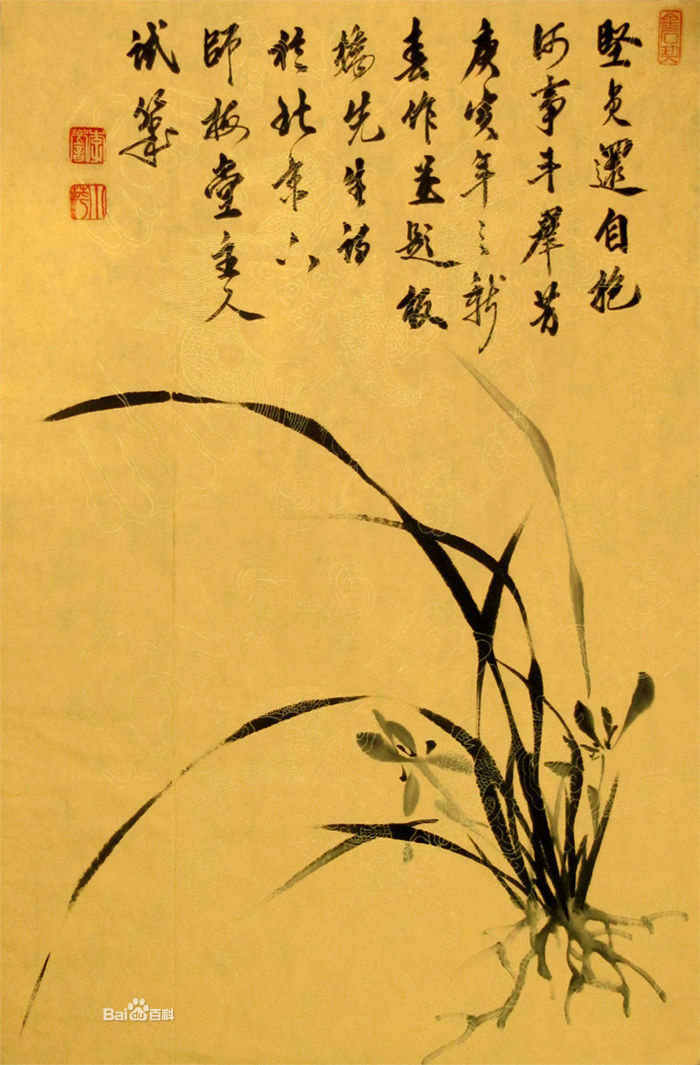 堅貞還自抱
何事斗羣芳
庚寅年之新
春作並題板
橋先生詩
於北京六
師梅堂主人
試筆
Bai百科